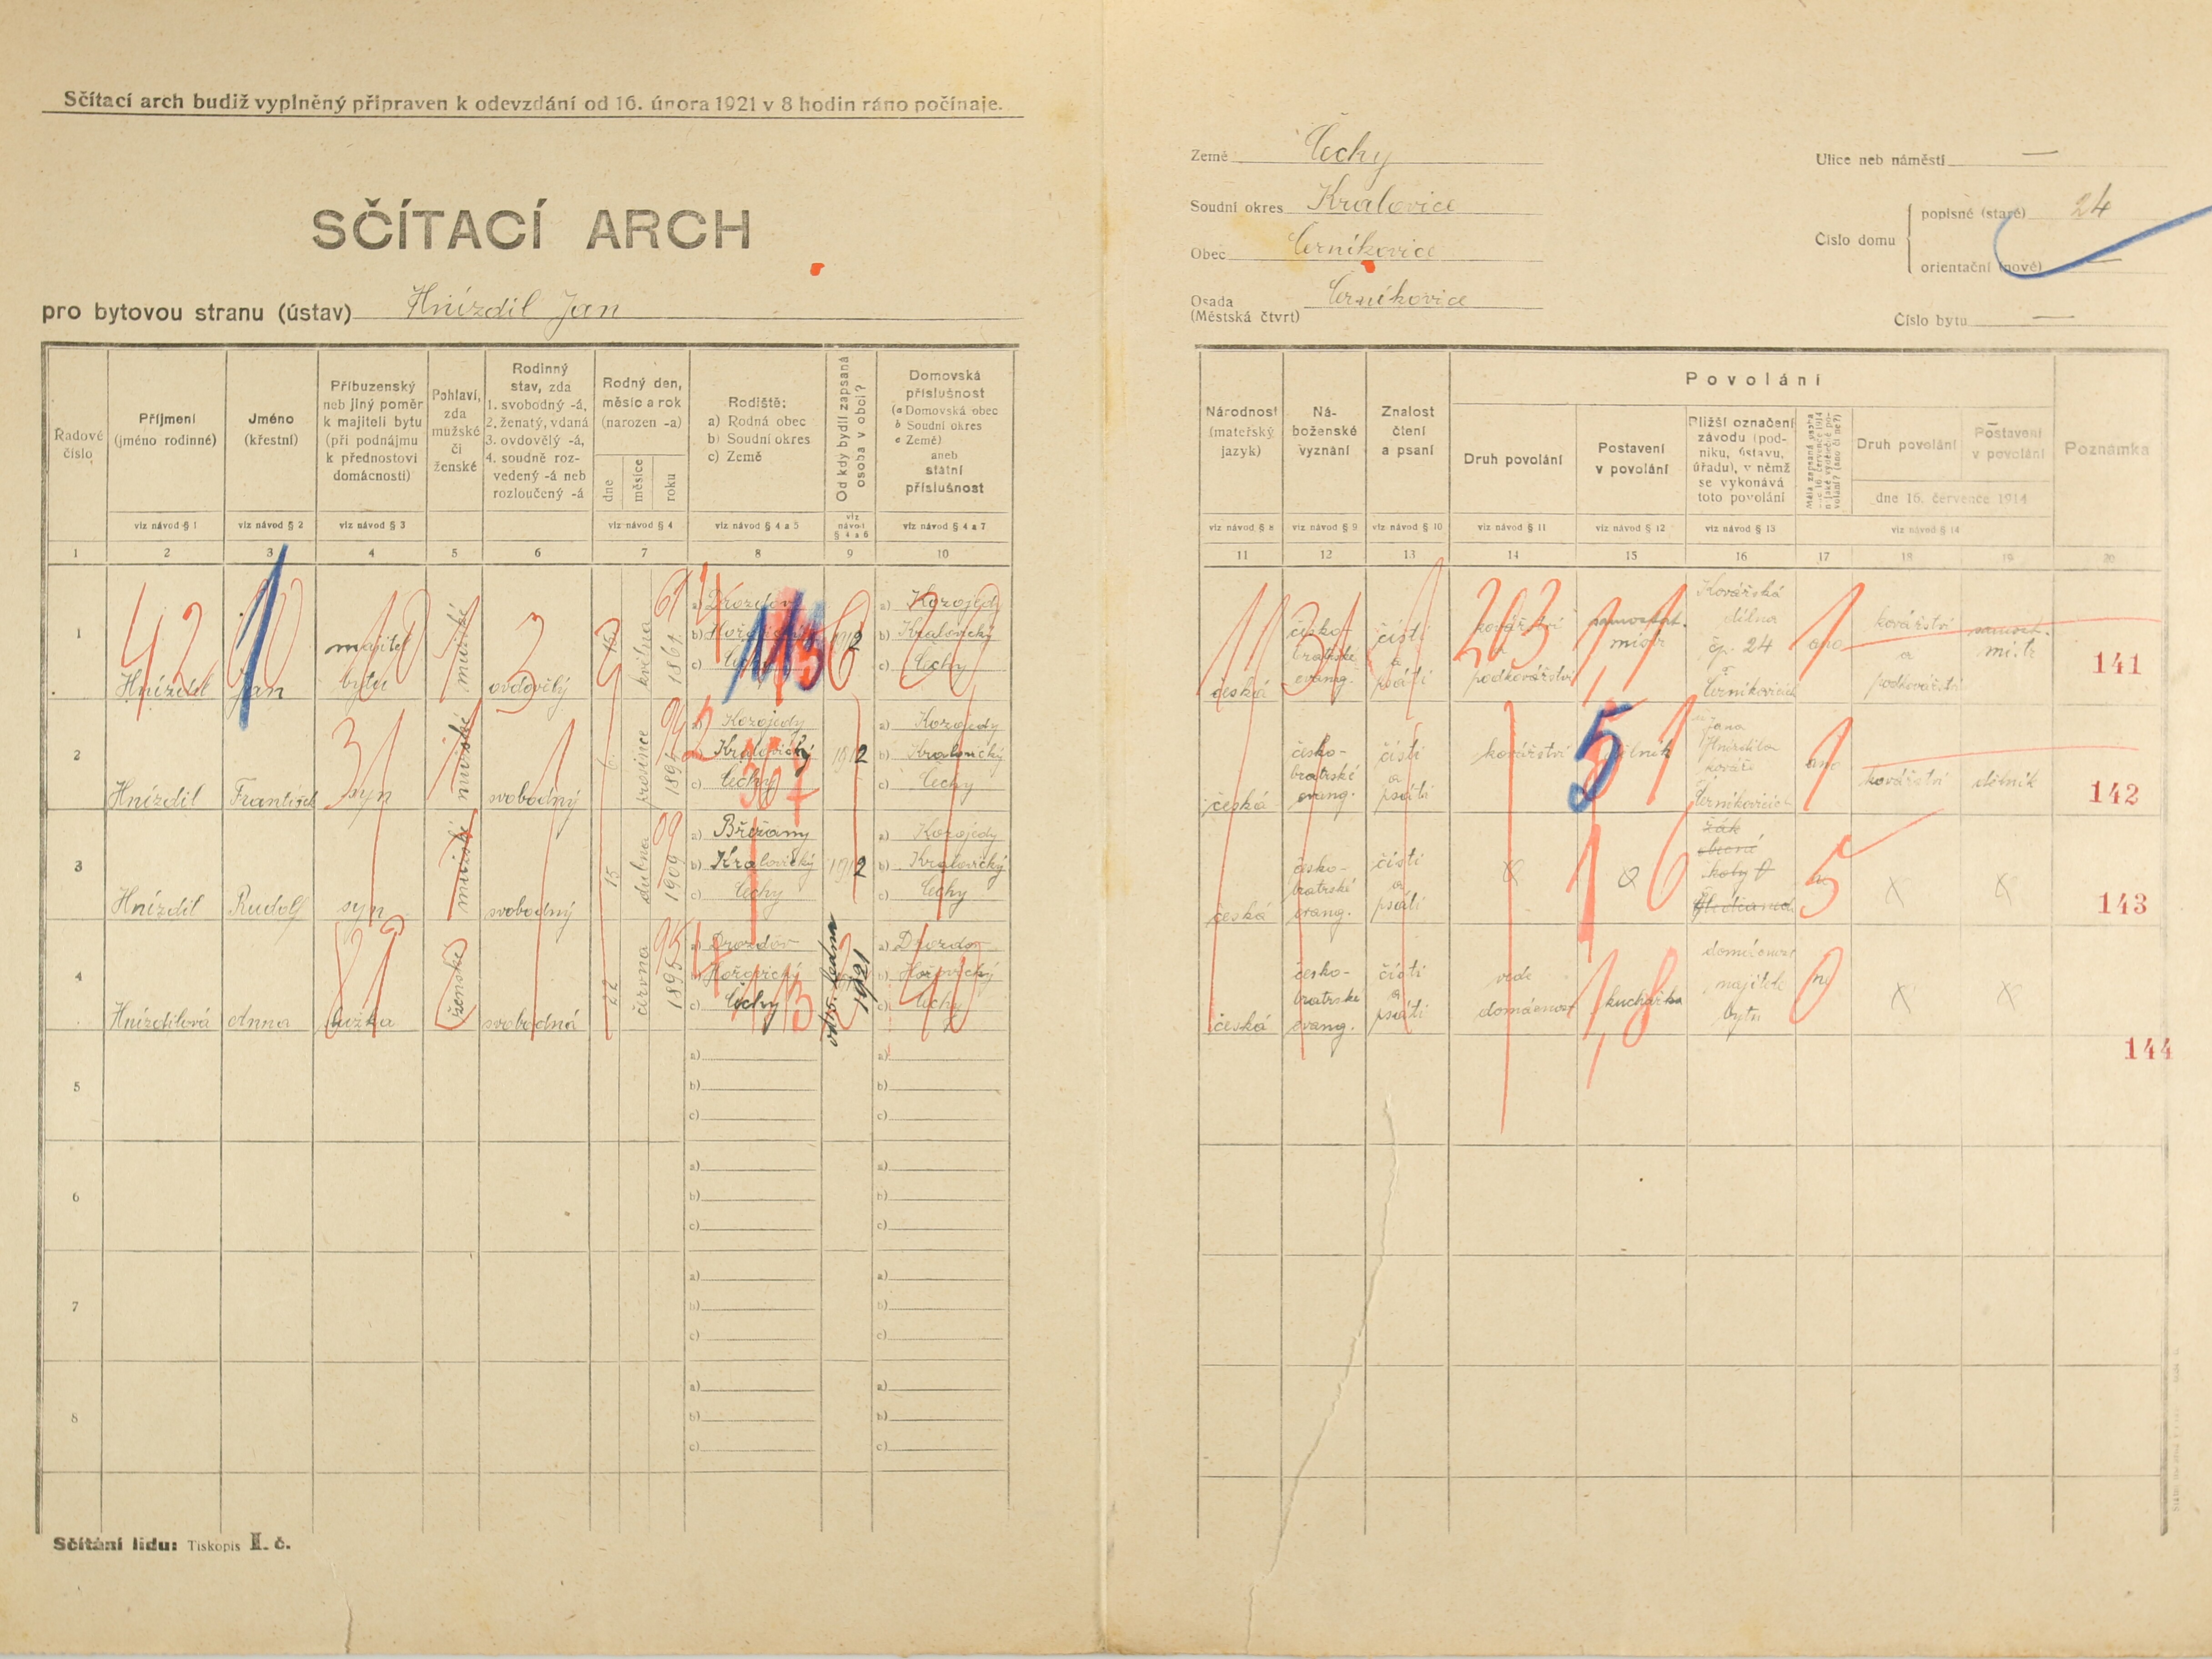 Sčítací arch budiž vyplněný připraven k odevzdání od 16. února 1921 v 8 hodin ráno počínaje.
SČÍTACÍ ARCH
pro bytovou stranu (ústav) Hnízdil Jan
Země Čechy
Soudní okres Kralovice
Obec Černíkovice
Osada Černíkovice
(Městská čtvrt)
Ulice neb náměstí —
Číslo domu
popisné (staré) 24
orientační (nové) —
Číslo bytu —
Řadové číslo
Příjmení (jméno rodinné)
Jméno (křestní)
Příbuzenský neb jiný poměr k majiteli bytu (při podnájmu k přednostovi domácnosti)
Pohlaví, zda mužské či ženské
Rodinný stav, zda 1. svobodný -á, 2. ženatý, vdaná 3. ovdovělý -á, 4. soudně rozvedený -á neb rozloučený -á
Rodný den, měsíc a rok (narozen -a)
dne měsíce roku
Rodiště: a) Rodná obec b) Soudní okres c) Země
Od kdy bydlí zapsaná osoba v obci?
Domovská příslušnost (a Domovská obec b Soudní okres c Země) aneb státní příslušnost
viz návod § 1
viz návod § 2
viz návod § 3
viz návod § 4
viz návod § 4 a 5
viz návod § 4 a 6
viz návod § 4 a 7
1 2 3 4 5 6 7 8 9 10
Národnost (mateřský jazyk)
Náboženské vyznání
Znalost čtení a psaní
Povolání
Druh povolání
Postavení v povolání
Bližší označení závodu (podniku, ústavu, úřadu), v němž se vykonává toto povolání
Druh povolání
Postavení v povolání
dne 16. července 1914
Poznámka
viz návod § 8
viz návod § 9
viz návod § 10
viz návod § 11
viz návod § 12
viz návod § 13
viz návod § 14
11 12 13 14 15 16 17 18 19 20
1 Hnízdil Jan majitel bytu mužské ovdovělý května 1861
a) Drozdov
c) Čechy
a) Kozojedy
b) Kralovický
c) Čechy
česká
česko-bratrské evang.
čísti a psáti
kovářství a podkovářství
samostat. mistr
Kovářská dílna čp. 24 v Černíkovicích
ano
kovářství a podkovářství
samost. mistr
141
2 Hnízdil František syn mužské svobodný 6. prosince 1894
a) Kozojedy
b) Kralovický
c) Čechy
1912
a) Kozojedy
b) Kralovický
c) Čechy
česká
česko-bratrské evang.
čísti a psáti
kovářství
dělník
Jana Hnízdila kováře Černíkovicích
ano
kovářství
dělník
142
3 Hnízdil Rudolf syn mužské svobodný 15 dubna 1909
a) Břežany
b) Kralovický
c) Čechy
1912
a) Kozojedy
b) Kralovický
c) Čechy
česká
česko-bratrské evang.
čísti a psáti
žák obecné školy
143
4 Hnízdilová Anna ženské svobodná 22 června 1895
a) Drozdov
b) Hořovický
c) Čechy
od 6. ledna 1921
a) Drozdov
b) Hořovický
c) Čechy
česká
česko-bratrské evang.
čísti a psáti
vede domácnost
kuchařka
domácnost majitele bytu
ne
144
5
a)
b)
c)
a)
b)
c)
6
a)
b)
c)
a)
b)
c)
7
a)
b)
c)
a)
b)
c)
8
a)
b)
c)
a)
b)
c)
Sčítání lidu: Tiskopis I. č.